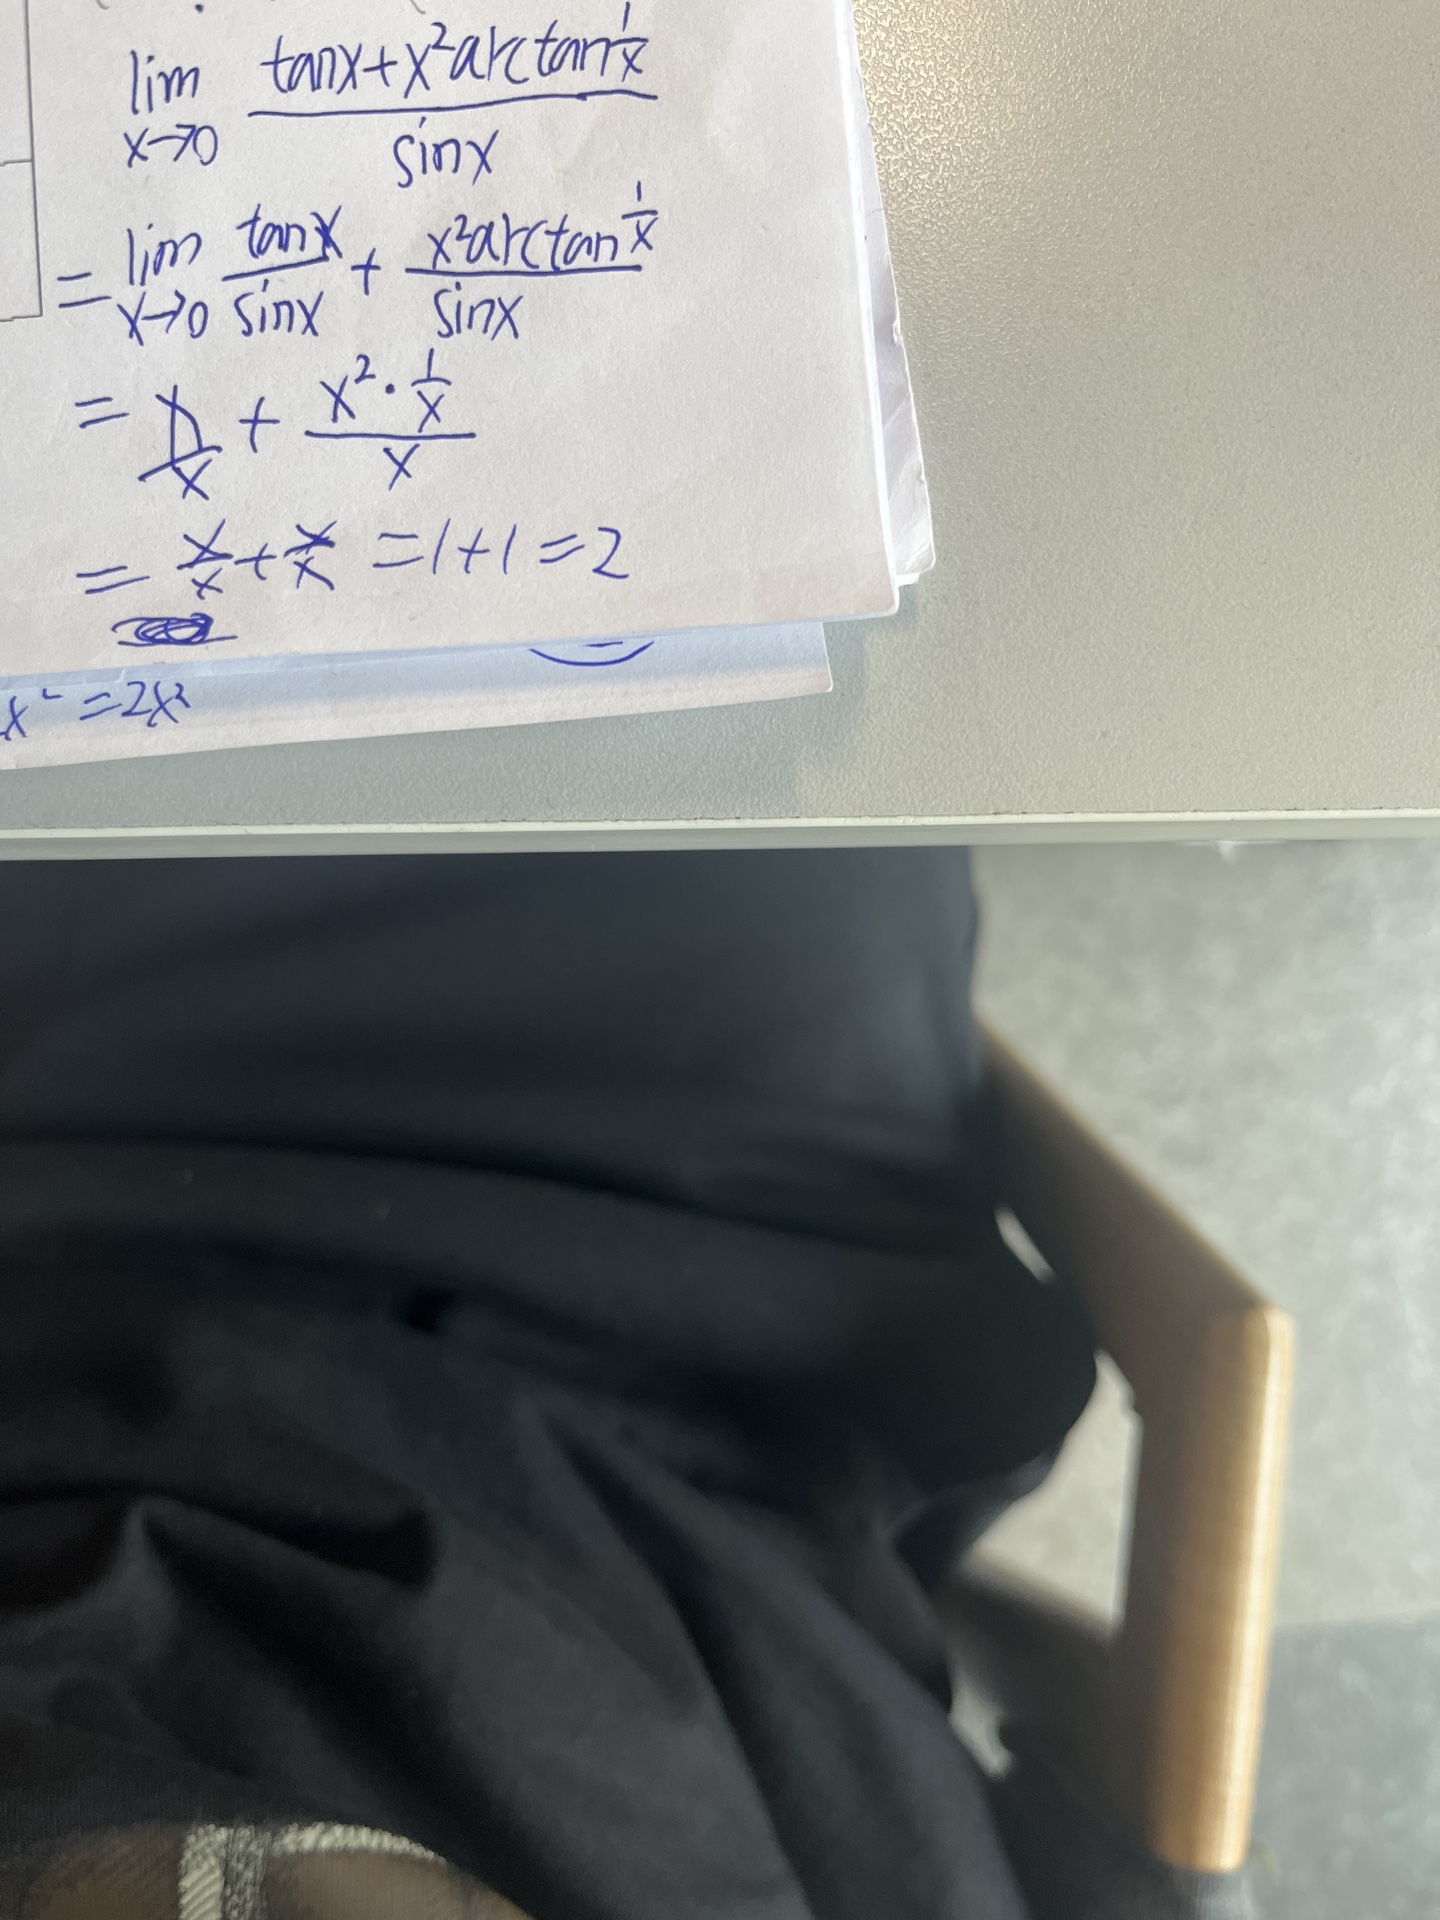 lim tanx+x²arctan1/x
x→0 sinx
= lim tanx/sinx + x²arctan1/x / sinx
x→0
= x/x + x²·1/x / x
= x/x + x/x = 1+1 = 2
x² =2x²